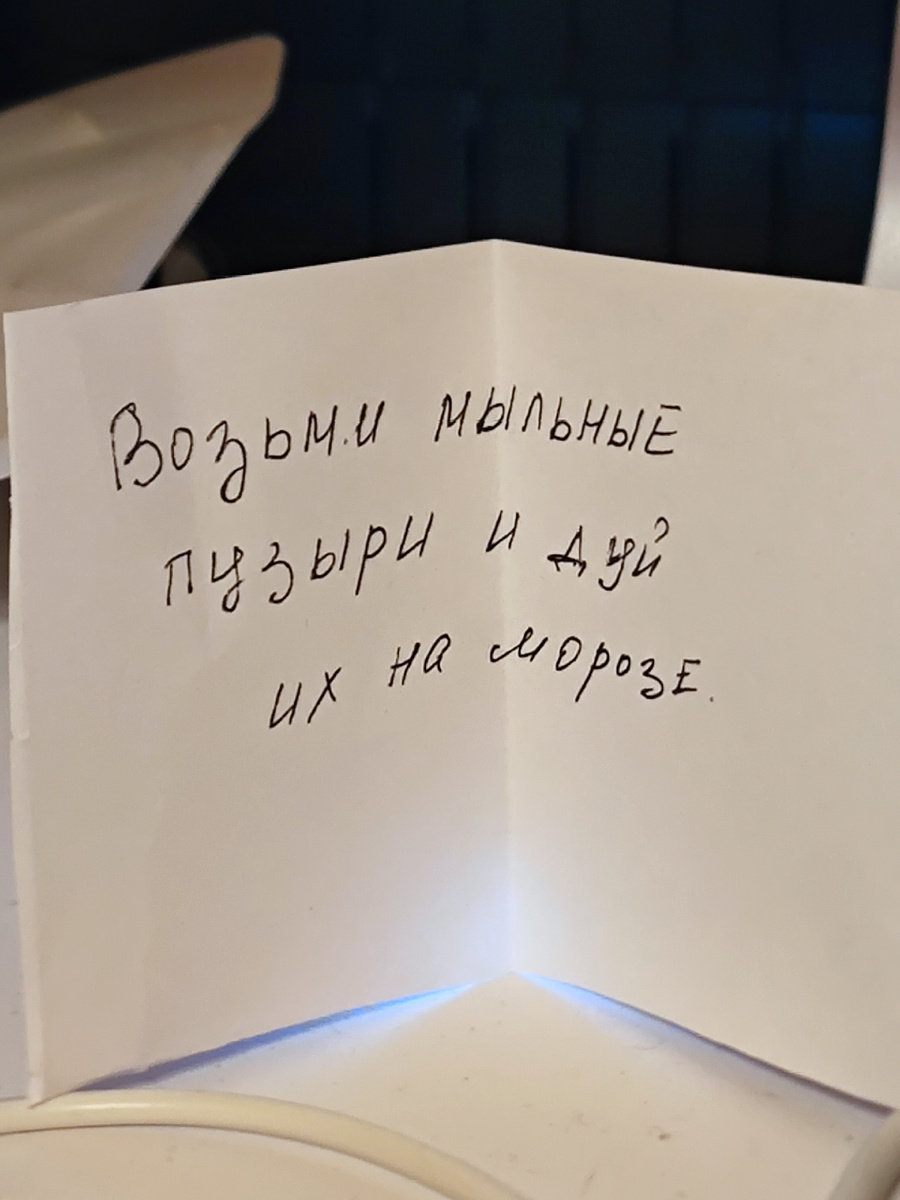 Возьми мыльные
пузыри и дуй
их на морозе.